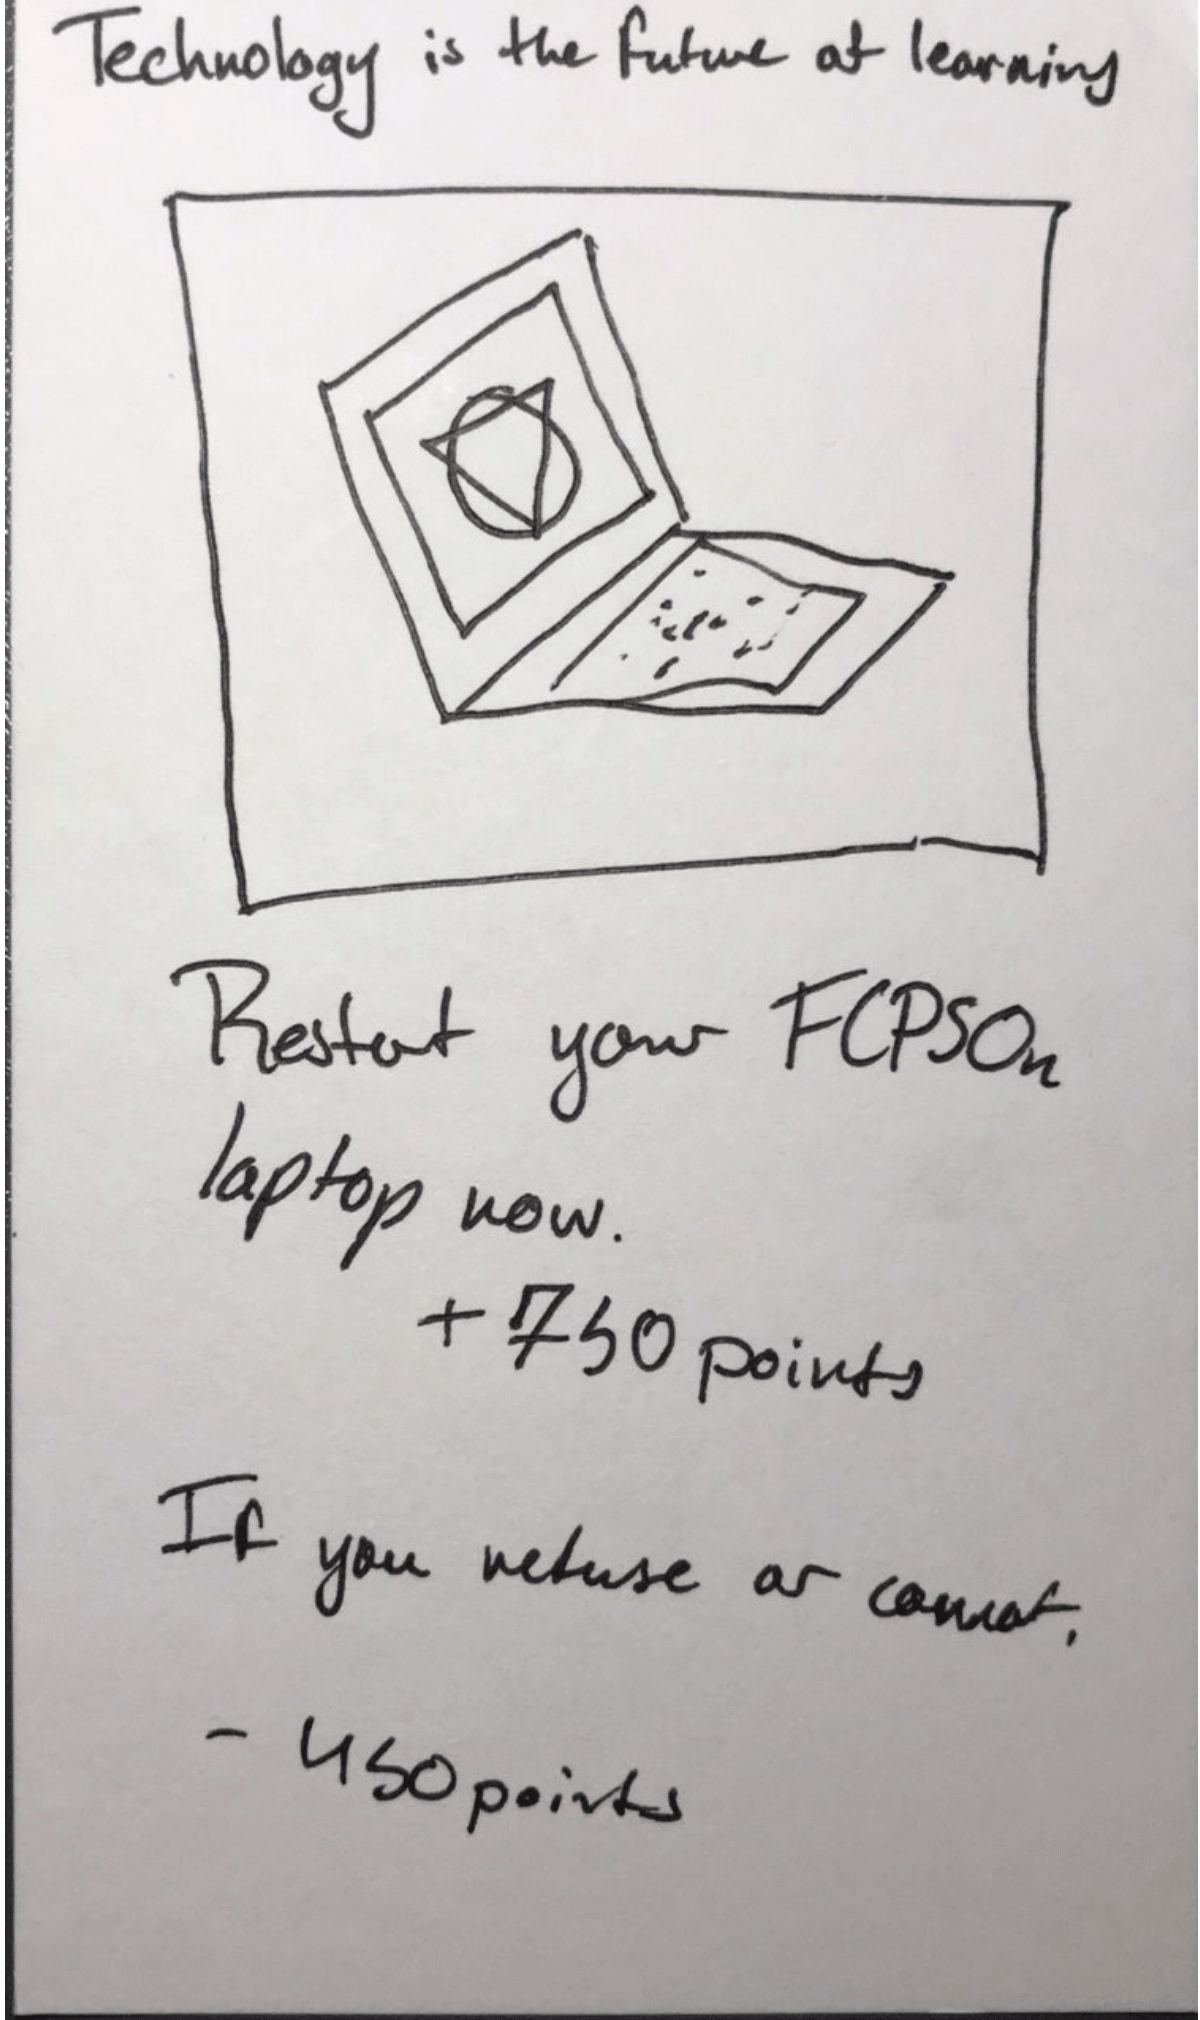 Technology is the future of learning
Restart your FCPSOn
laptop now.
+ 750 points
If you refuse or cannot,
- 450 points